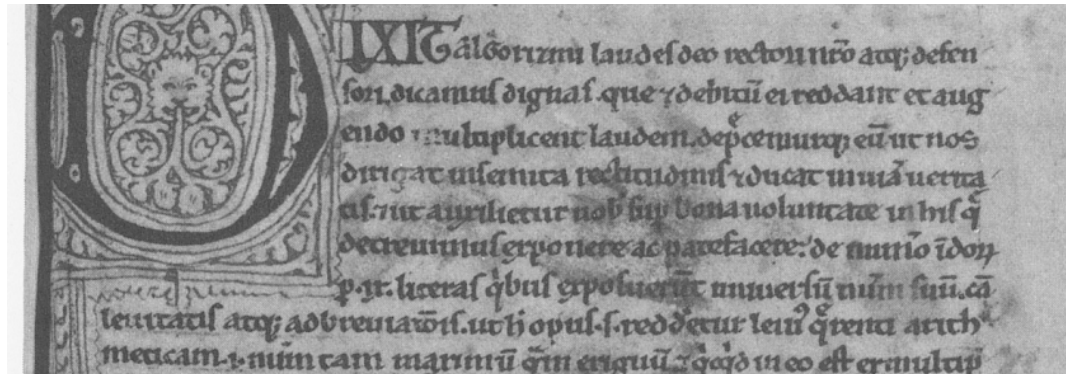 DIXIT algorizmi laudes deo rectori nr̄o atq; defen
sori dicamus dignas. que ⁊ debitū ei reddant et aug
endo multiplicent laudem. dep̄cemurq; eū ut nos
dirigat in semita rectitudinis ⁊ ducat in uiā uerita
tis. ⁊ ut auxilietur nob̄ sup̄ bona uoluntate in his q̄
decreuimus exponere ac patefacere: de num̄o īdoꝝ
p .ix. literas q̇bus exposuerūt uniuersū num̄ suū. cā
leuitatis atq; adbreuiat̄ois. ut h̄ opus .s. redderetur leui᷒ q̄renti arith
meticam .i. num̄ tam maximū q̄m exiguū ⁊ q̇cq̇d in eo est ex multip̄